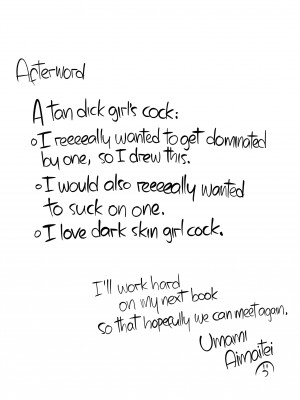 Afterword
A tan dick girl's cock:
I reeeeally wanted to get dominated
by one, so I drew this.
I would also reeeeally wanted
to suck on one.
I love dark skin girl cock.
I'll work hard
on my next book
so that hopefully we can meet again.
Umami
Aimaitei